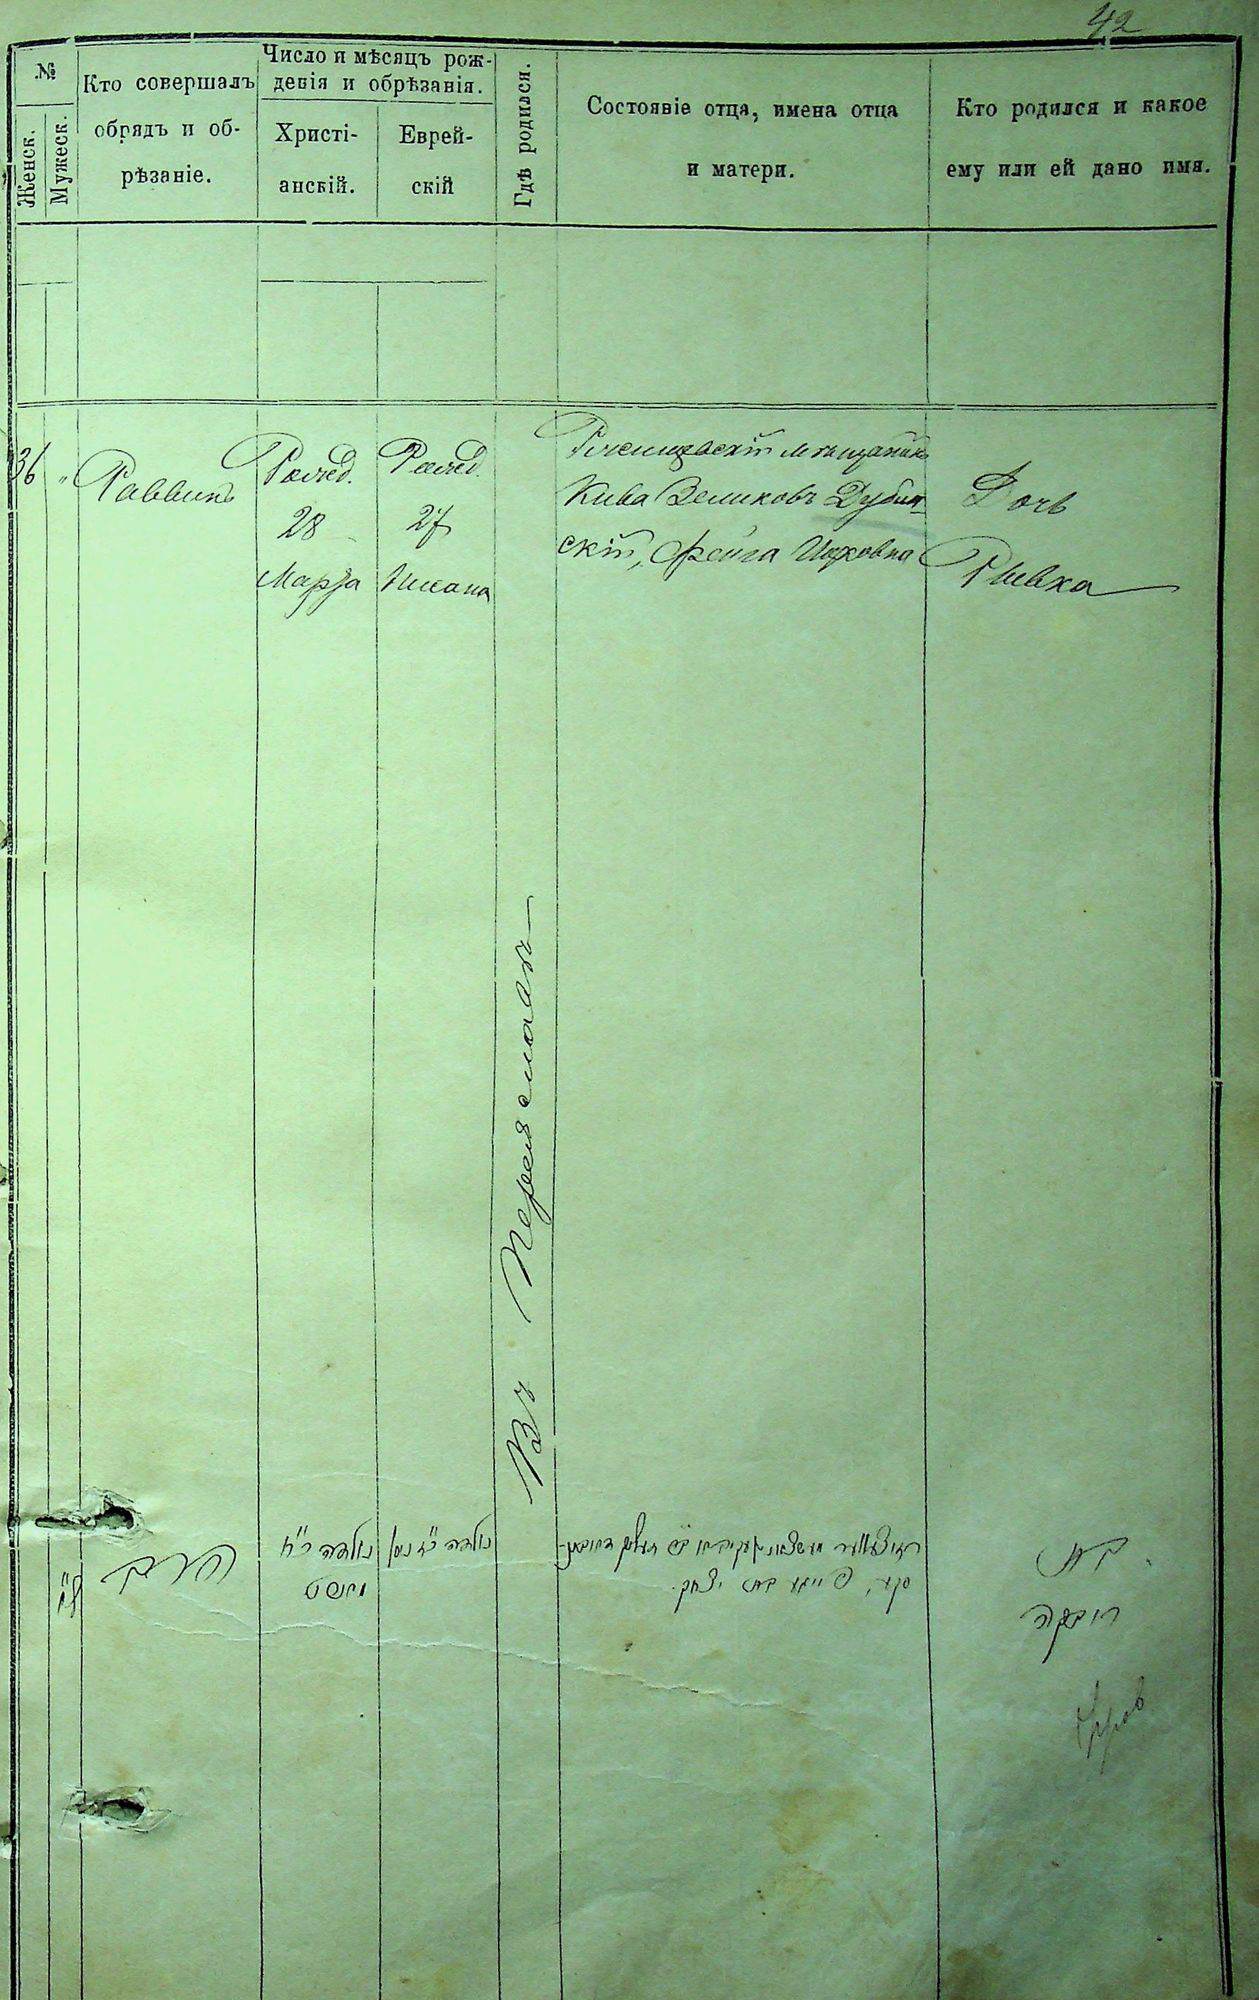 42
№
Женск.
Мужеск.
Кто совершалъ
обрядъ и об-
рѣзаніе.
Число и мѣсяцъ рож-
денія и обрѣзанія.
Христі-
анскій.
Еврей-
скій
Гдѣ родился.
Состояніе отца, имена отца
и матери.
Кто родился и какое
ему или ей дано имя.
36
"
Раввинъ
Рожд.
28
Марта
Рожд.
27
Нисана
Въ Переяславѣ
мѣщанинъ
Кива Зеликовъ Дубин-
скій, Фейга Ицковна
Дочь
Рывка
הרב
נולדה כ"ח
נולדה כ"ז ניסן
פייגא בת יצחק
בת
רבקה